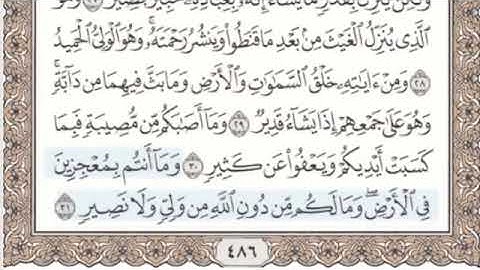 وَلَٰكِن يُنَزِّلُ بِقَدَرٍ مَّا يَشَآءُ إِنَّهُۥ بِعِبَادِهِۦ خَبِيرٌۢ بَصِيرٌ ٢٧ وَهُوَ
ٱلَّذِى يُنَزِّلُ ٱلْغَيْثَ مِنۢ بَعْدِ مَا قَنَطُوا۟ وَيَنشُرُ رَحْمَتَهُۥ ۚ وَهُوَ ٱلْوَلِىُّ ٱلْحَمِيدُ
٢٨ وَمِنْ ءَايَٰتِهِۦ خَلْقُ ٱلسَّمَٰوَٰتِ وَٱلْأَرْضِ وَمَا بَثَّ فِيهِمَا مِن دَآبَّةٍ ۚ
وَهُوَ عَلَىٰ جَمْعِهِمْ إِذَا يَشَآءُ قَدِيرٌ ٢٩ وَمَآ أَصَٰبَكُم مِّن مُّصِيبَةٍ فَبِمَا
كَسَبَتْ أَيْدِيكُمْ وَيَعْفُوا۟ عَن كَثِيرٍ ٣٠ وَمَآ أَنتُم بِمُعْجِزِينَ
فِى ٱلْأَرْضِ ۖ وَمَا لَكُم مِّن دُونِ ٱللَّهِ مِن وَلِىٍّ وَلَا نَصِيرٍ ٣١
٤٨٦